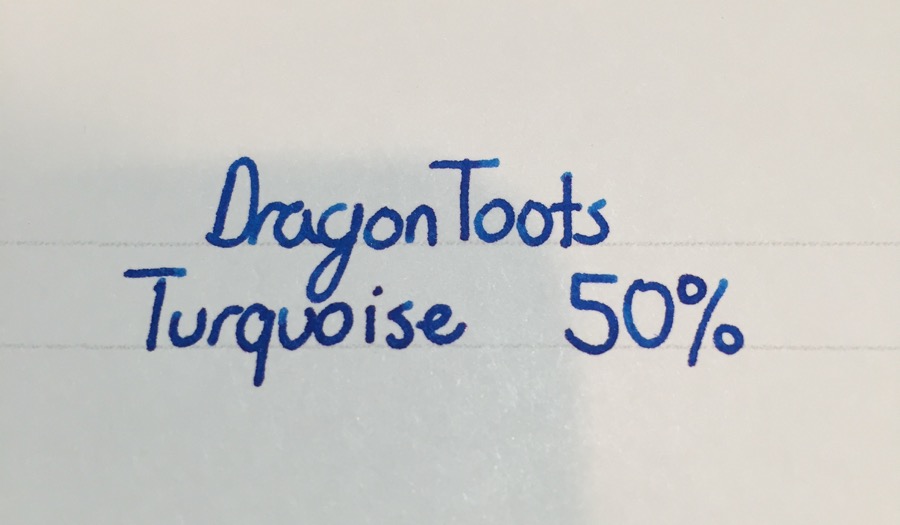 DragonToots
Turquoise 50%